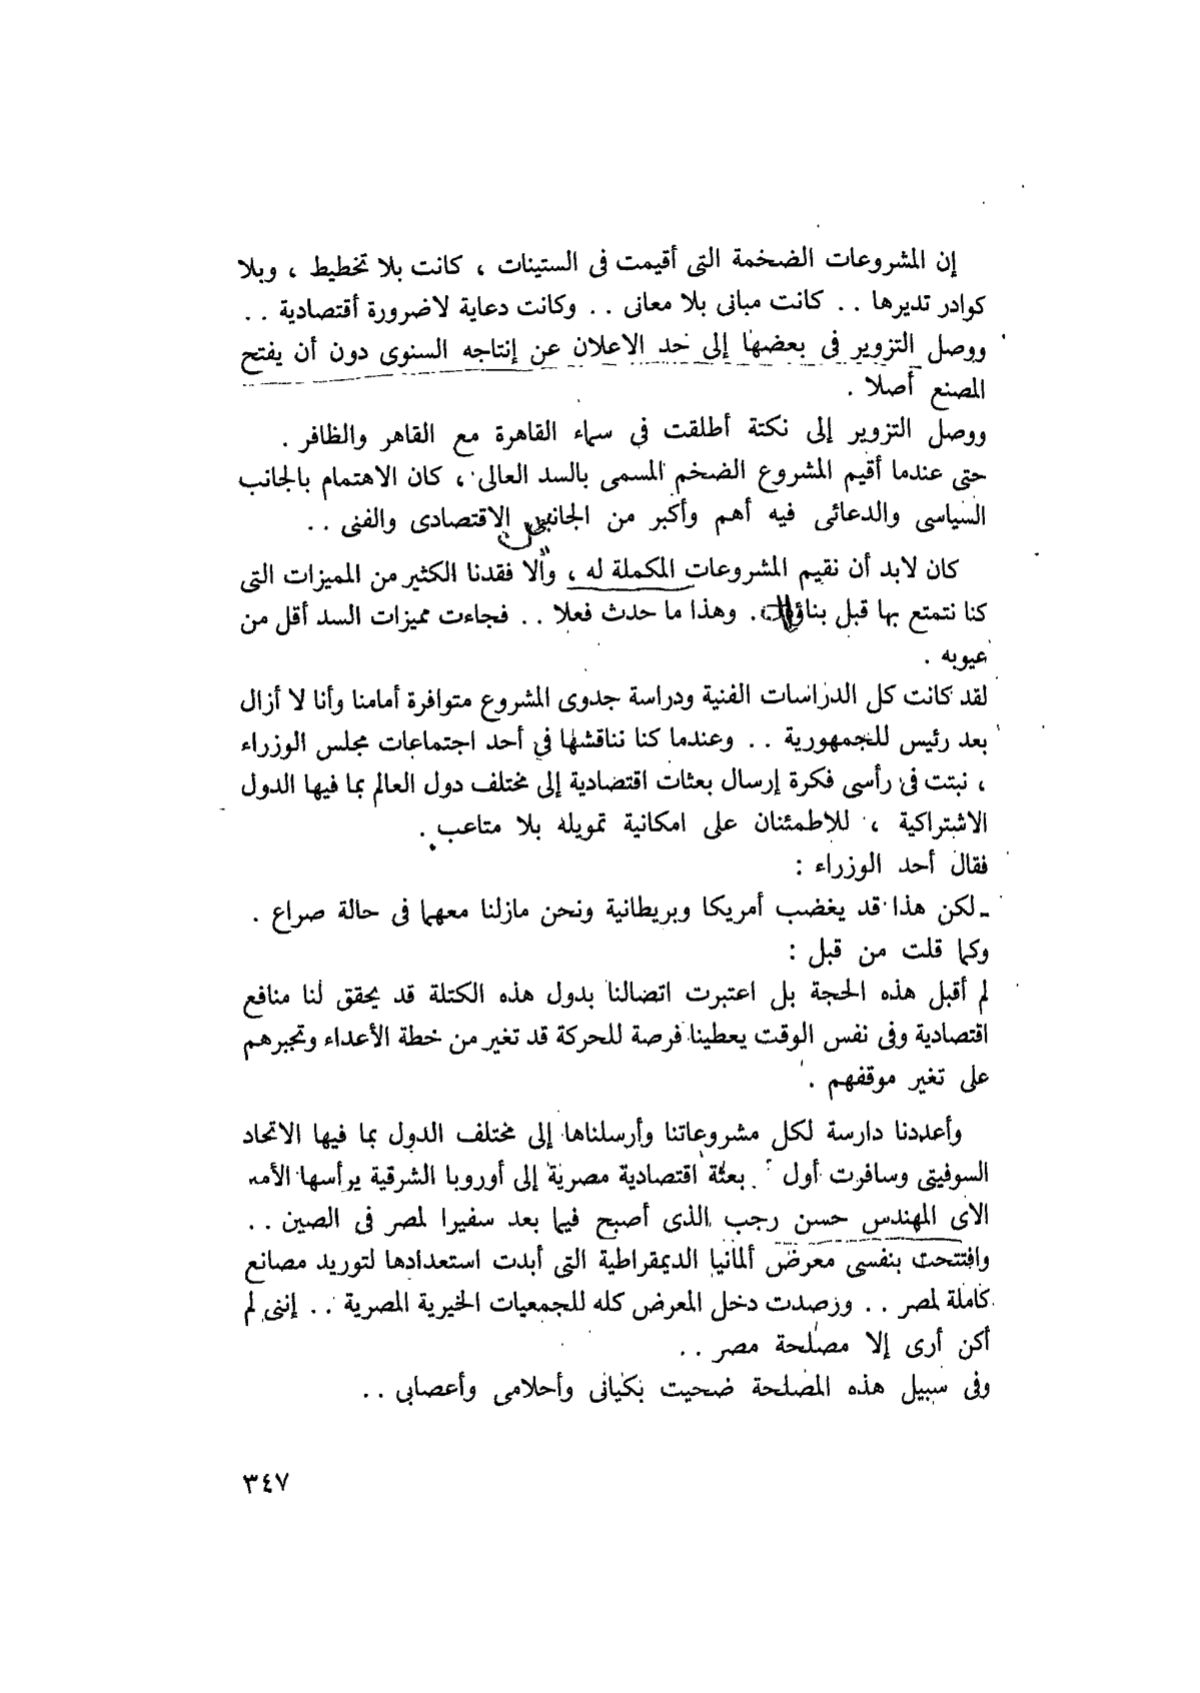 إن المشروعات الضخمة التى أقيمت فى الستينات ، كانت بلا تخطيط ، وبلا
كوادر تديرها . . كانت مبانى بلا معانى . . وكانت دعاية لاضرورة أقتصادية . .
ووصل التزوير فى بعضها إلى حد الاعلان عن إنتاجه السنوى دون أن يفتح
المصنع أصلا .
ووصل التزوير إلى نكتة أطلقت فى سماء القاهرة مع القاهر والظافر .
حتى عندما أقيم المشروع الضخم المسمى بالسد العالى ، كان الاهتمام بالجانب
السياسى والدعائى فيه أهم وأكبر من الاقتصادى والفنى . .
كان لابد أن نقيم المشروعات المكملة له ، وألا فقدنا الكثير من المميزات التى
كنا نتمتع بها قبل . وهذا ما حدث فعلا . . فجاءت مميزات السد أقل من
عيوبه .
لقد كانت كل الدراسات الفنية ودراسة جدوى المشروع متوافرة أمامنا وأنا لا أزال
بعد رئيس للجمهورية . . وعندما كنا نناقشها في أحد اجتماعات مجلس الوزراء
، نبتت فى رأسى فكرة إرسال بعثات اقتصادية إلى مختلف دول العالم بما فيها الدول
الاشتراكية ، للاطمئنان على امكانية تمويله بلا متاعب .
فقال أحد الوزراء :
ـ لكن هذا قد يغضب أمريكا وبريطانية ونحن مازلنا معهما فى حالة صراع .
وكما قلت من قبل :
لم أقبل هذه الحجة بل اعتبرت اتصالنا بدول هذه الكتلة قد يحقق لنا منافع
اقتصادية وفى نفس الوقت يعطينا فرصة للحركة قد تغير من خطة الأعداء وتجبرهم
على تغير موقفهم .
وأعددنا دارسة لكل مشروعاتنا وأرسلناها إلى مختلف الدول بما فيها الاتحاد
السوفيتى وسافرت أول بعثة اقتصادية مصرية إلى أوروبا الشرقية يرأسها
الاى المهندس حسن رجب الذى أصبح فيما بعد سفيرا لمصر فى الصين . .
وافتتحت بنفسى معرض ألمانيا الديمقراطية التى أبدت استعدادها لتوريد مصانع
كاملة لمصر . . ورصدت دخل المعرض كله للجمعيات الخيرية المصرية . . إننى لم
أكن أرى إلا مصلحة مصر . .
وفى سبيل هذه المصلحة ضحيت بكيانى وأحلامى وأعصابى . .
٣٤٧